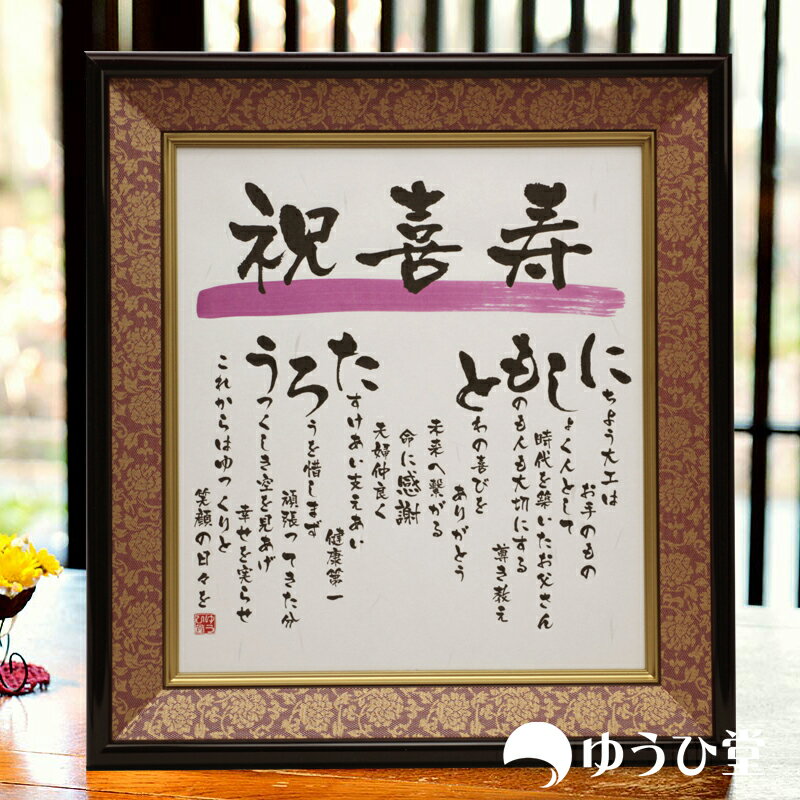 祝喜寿
にちよう大工は
お手のもの
しょくんとして
時代を築いたお父さん
ものも人も大切にする
尊き教え
とわの喜びを
ありがとう
未来へ繋がる
命に感謝
夫婦仲良く
たすけあい支えあい
健康第一
ろうを惜しまず
頑張ってきた分
うつくしき空を見あげ
幸せを実らせ
これからはゆっくりと
笑顔の日々を
ゆうひ堂
ゆうひ堂